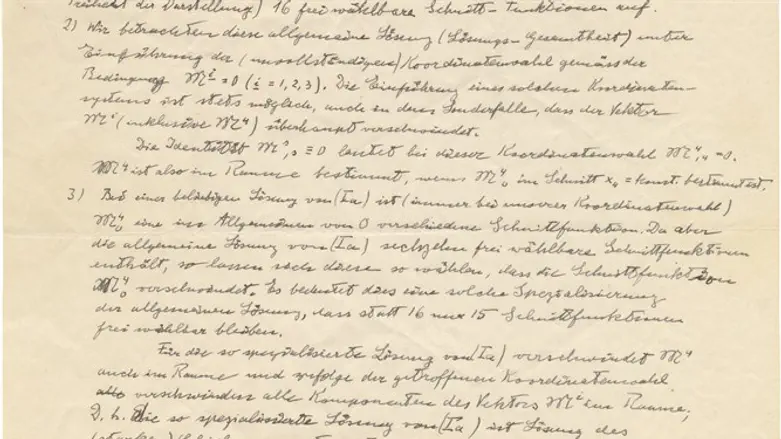 Freiheit der Darstellung) 16 frei wählbare Schnitt-Funktionen auf.
2) Wir betrachten diese allgemeine Lösung (Lösungs-Gesamtheit) unter
Einführung der (unvollständigen) Koordinatenwahl gemäss der
Bedingung 𝔐^i = 0 (i = 1, 2, 3). Die Einführung eines solchen Koordinaten-
systems ist stets möglich, auch in dem Sonderfalle, dass der Vektor
𝔐^i (inklusive 𝔐^4) überhaupt verschwindet.
Die Identität 𝔐^s,s ≡ 0 lautet bei dieser Koordinatenwahl 𝔐^4,4 = 0.
𝔐^4 ist also im Raume bestimmt, wenn 𝔐^4_0 im Schnitt x_4 = konst. bestimmt ist.
3) Bei einer beliebigen Lösung von (Ia) ist (immer bei unserer Koordinatenwahl)
𝔐^4_0 eine im Allgemeinen von 0 verschiedene Schnittfunktion. Da aber
die allgemeine Lösung von (Ia) sechzehn frei wählbare Schnittfunktionen
enthält, so lassen sich diese so wählen, dass die Schnittfunktion
𝔐^4_0 verschwindet. Es bedeutet dies eine solche Spezialisierung
der allgemeinen Lösung, dass statt 16 nur 15 Schnittfunktionen
frei wählbar bleiben.
Für die so spezialisierte Lösung von (Ia) verschwindet 𝔐^4
auch im Raume und infolge der getroffenen Koordinatenwahl
verschwinden alle Komponenten des Vektors 𝔐^i im Raume;
D. h. Die so spezialisierte Lösung von (Ia) ist Lösung des